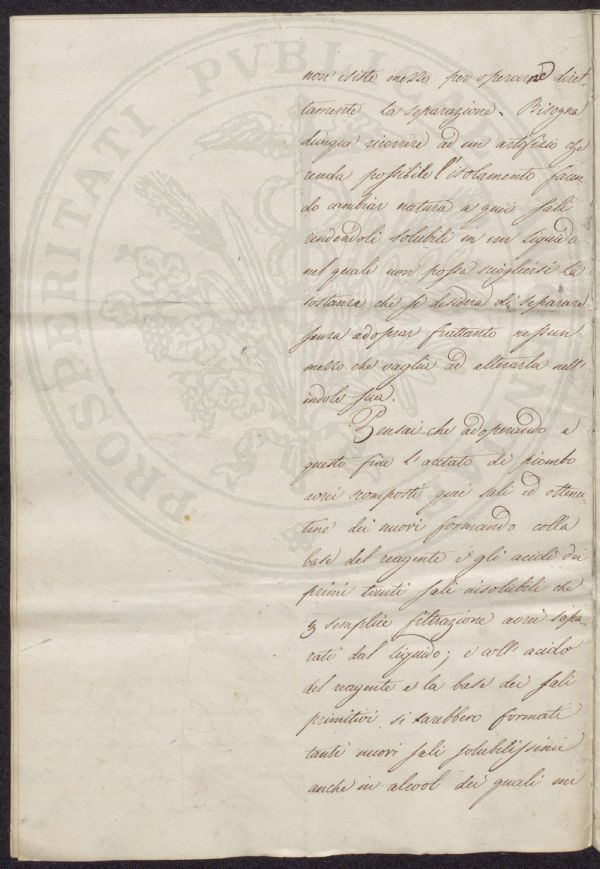 non esiste mezzo per operarne diret-
tamente la separazione. Bisogna
dunque ricorrere ad un artifizio che
renda possibile l'isolamento facen-
do cambiar natura a quei sali
rendendoli solubili in un liquido
nel quale non possa sciogliersi la
sostanza che si desidera di separare
senza adoprar frattanto nessun
mezzo che vaglia ad alterarla nell'
indole sua.
Pensai che adoperando a
questo fine l'acetato di piombo
avrei scomposti quei sali ed ottenu-
tine dei nuovi formando colla
base del reagente e gli acidi dei
primi tanti sali insolubili che
semplice filtrazione avrei sepa-
rati dal liquido; e coll'acido
del reagente e la base dei sali
primitivi si sarebbero formati
tanti nuovi sali solubilissimi
anche in alcool dei quali me
PROSPERITATI PVBLICAE